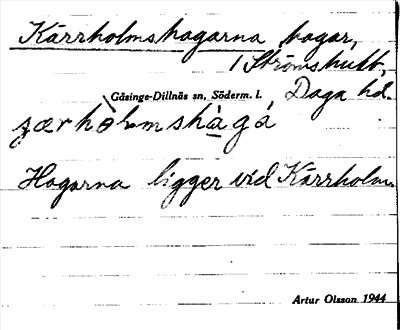 Kärrholmshagarna hagar,
1 Strömshult,
Gåsinge-Dillnäs sn, Söderm. l. Daga hd.
Hagarna ligger vid Kärrholm.
Artur Olsson 1944